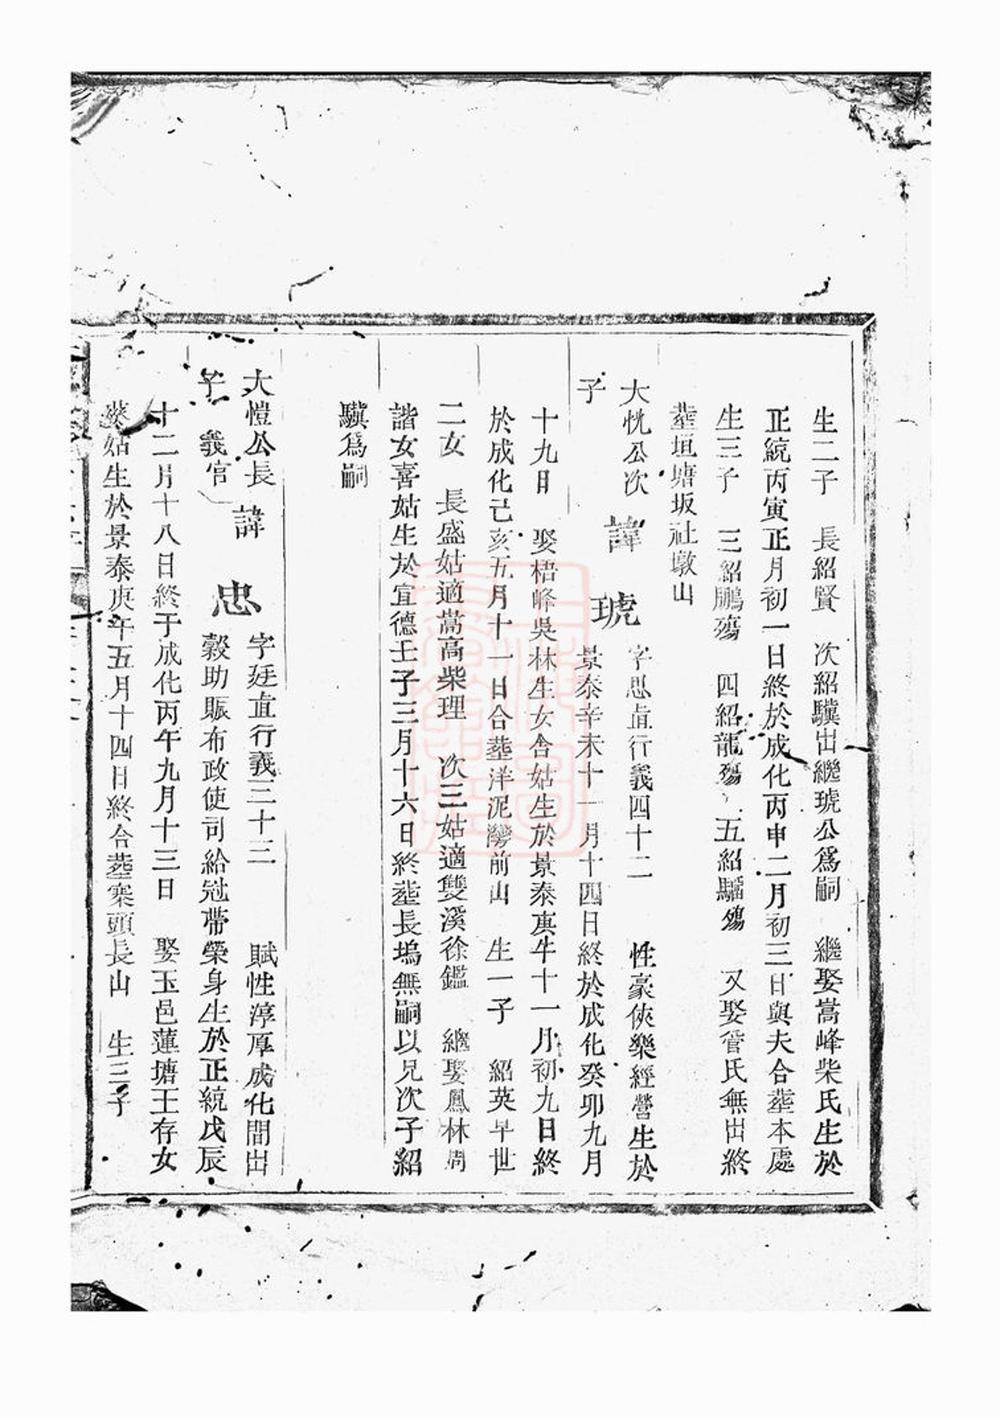 生二子　長紹賢　次紹驥出繼琥公爲嗣　繼娶嵩峰柴氏生於
正統丙寅正月初一日終於成化丙申二月初三日與夫合塟本處
生三子　三紹鵬殤　四紹龍殤　五紹騶殤　又娶管氏無出終
塟垣塘坂社墩山
大恍公次子　諱琥　字思直行義四十二　性豪俠樂經營生於
景泰辛未十一月十四日終於成化癸卯九月
十九日　娶梧峰吳林生女含姑生於景泰庚午十一月初九日終
於成化己亥五月十一日合塟洋泥灣前山　生一子　紹英早世
二女　長盛姑適嵩高柴理　次三姑適雙溪徐鑑　繼娶鳳林周
諧女喜姑生於宣德壬子三月十六日終塟長塢無嗣以兄次子紹
驥爲嗣
大愷公長子　義官　諱忠　字廷直行義三十三　賦性淳厚成化間出
穀助賑布政使司給冠帶榮身生於正統戊辰
十二月十八日終于成化丙午九月十三日　娶玉邑蓮塘王存女
姑生於景泰庚午五月十四日終合塟寨頭長山　生三子